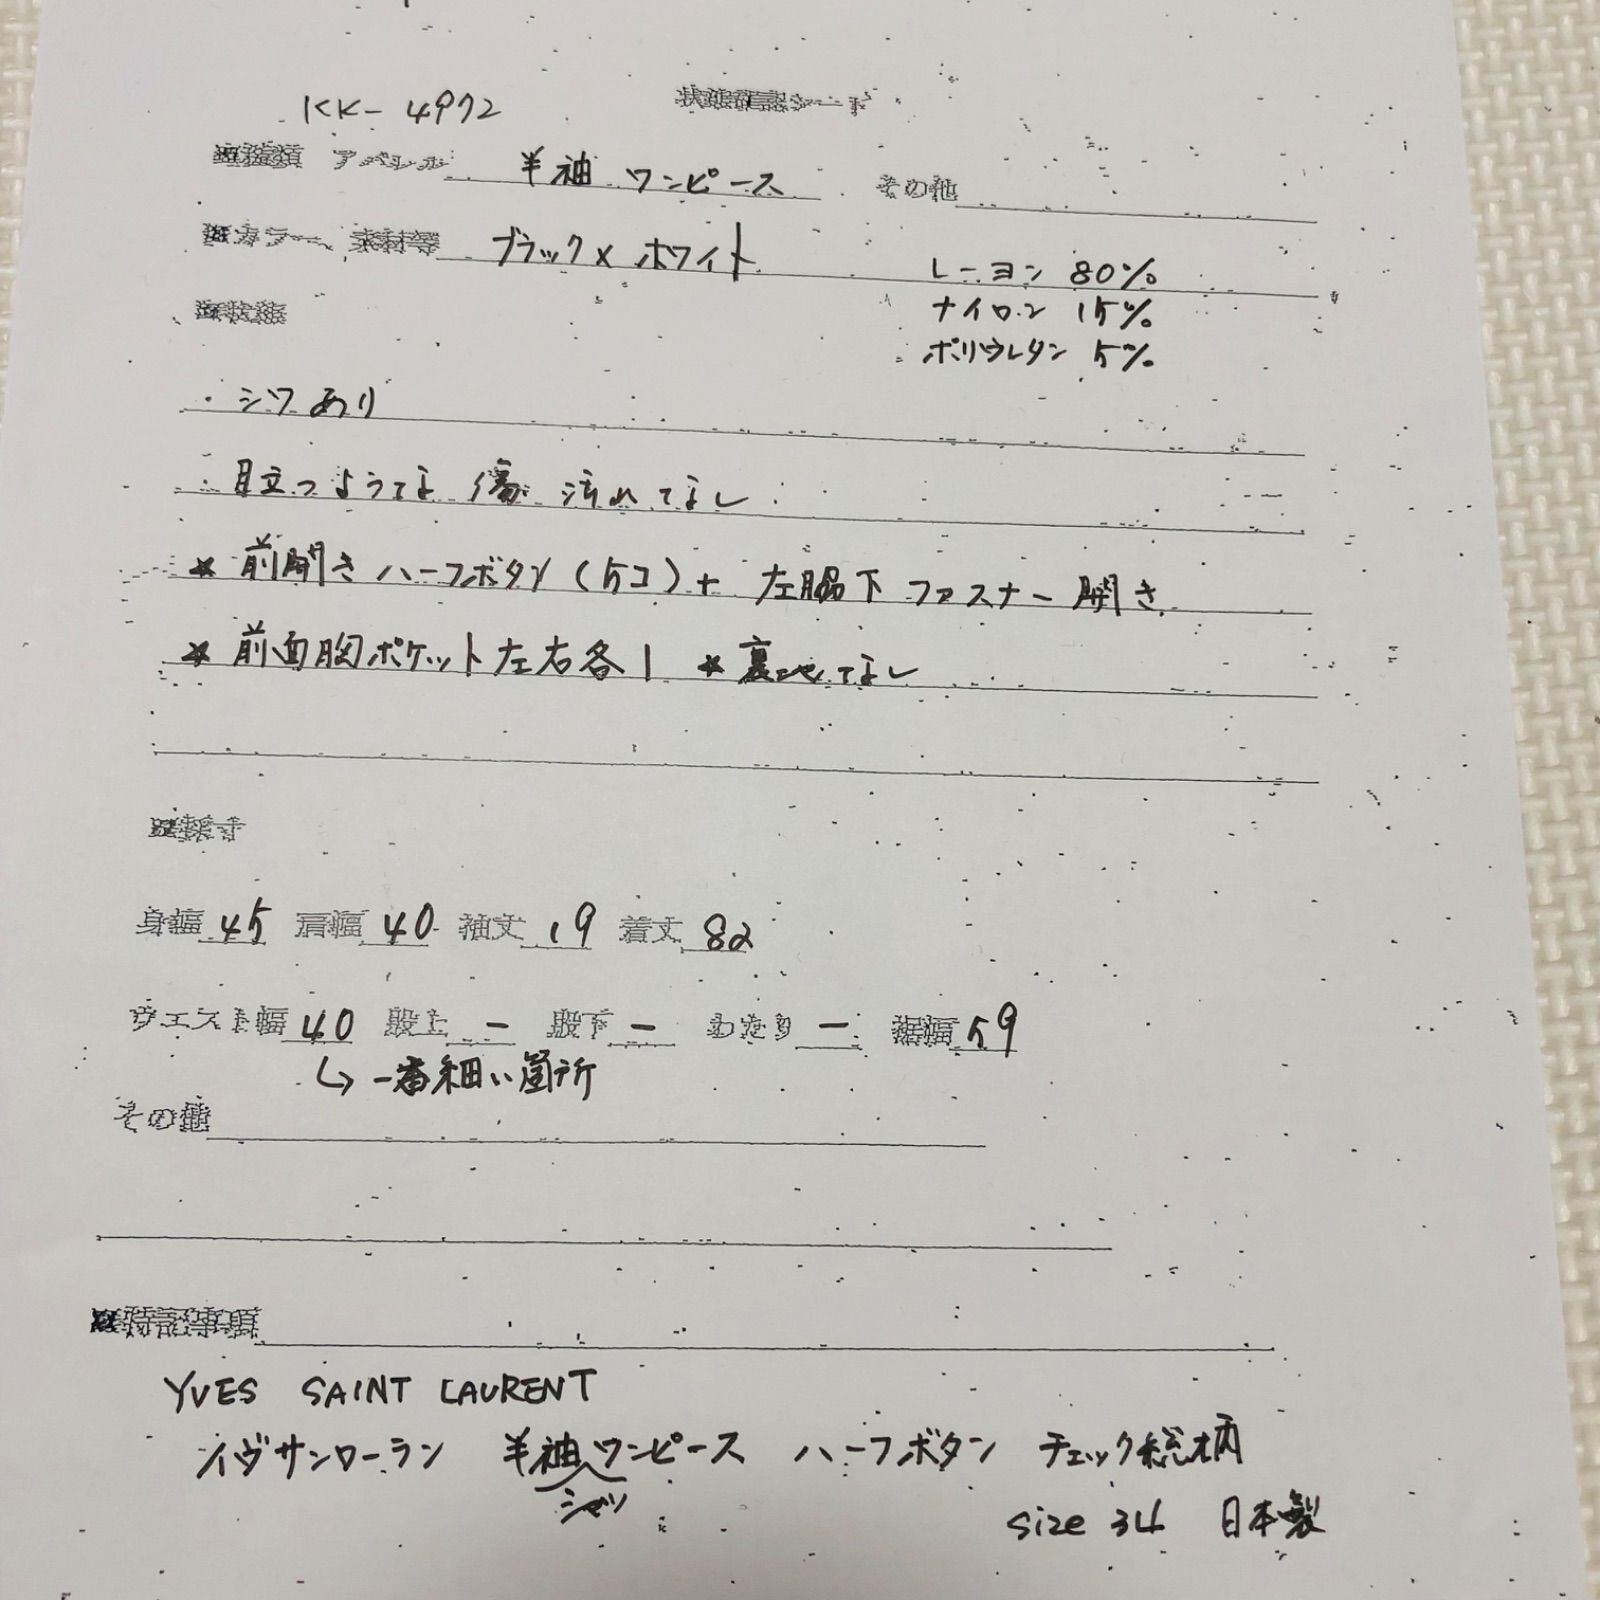 KK-4972 状態確認シート
アパレル 半袖 ワンピース その他
カラー、素材等 ブラック×ホワイト レーヨン 80%
ナイロン 15%
状態
ポリウレタン 5%
・シワあり
・目立つような傷 汚れなし
* 前開きハーフボタン(5コ)+ 左脇下ファスナー開き
* 前面胸ポケット左右各1 * 裏地なし
採寸
身幅 45 肩幅 40 袖丈 19 着丈 82
ウエスト幅 40 股上 - 股下 - わたり - 裾幅 59
↳ 一番細い箇所
その他
特記事項
YVES SAINT LAURENT
イヴサンローラン 半袖ワンピース ハーフボタン チェック総柄
シャツ
size 34 日本製